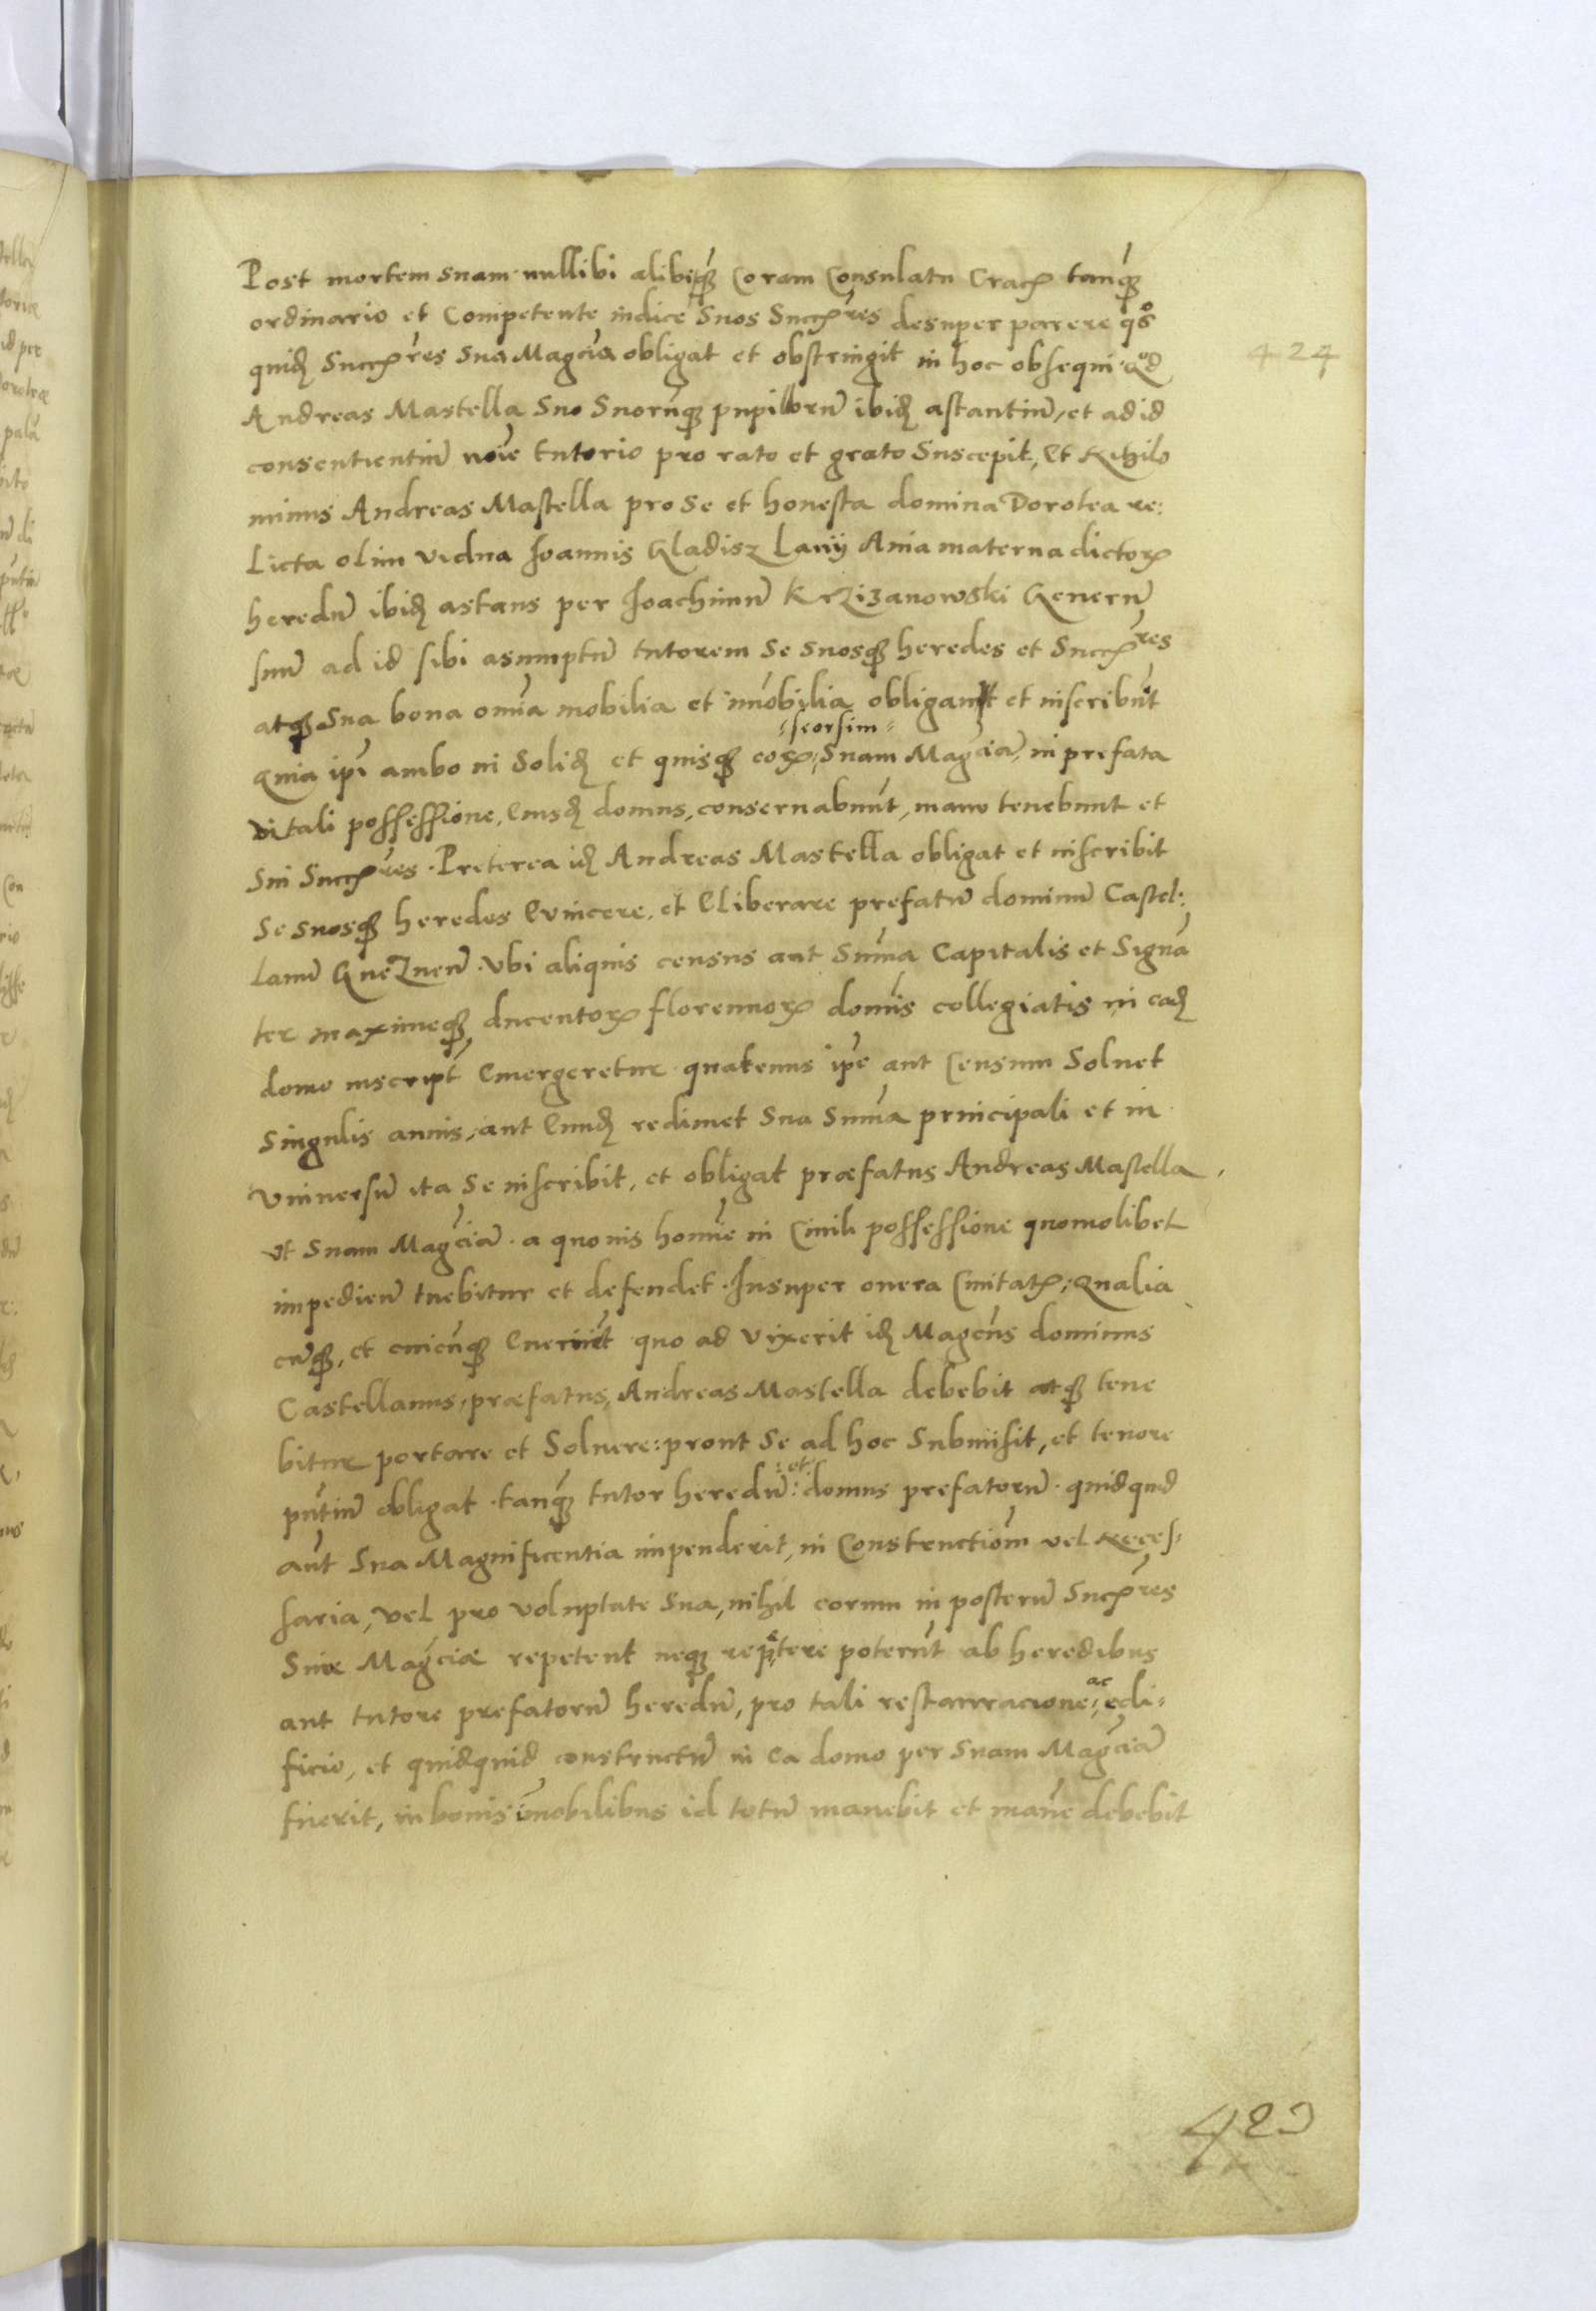 Post mortem suam nullibi alibiqꝫ Coram Consulatu Cracꝭ tanqꝫ
ordinario et Competente iudice Suos Succꝭres desuper parere
quidꝫ Succꝭres Sua Magcia obligat et obstringit in hoc obsequi qd
424
Andreas Mastella Suo Suorūqꝫ pupillorū ibidꝫ astantiū, et ad id
consentientiū noīe tutorio pro rato et grato Suscepit, Et Nihilo
minus Andreas Mastella pro Se et honesta domina Dorotea re:
Licta olim vidua Joannis Gladisz Lanij Auia materna dictorꝝ
heredū ibidꝫ astans per Joachimū Krzizanowski Generū
suū ad id sibi asumptū tutorem Se suosqꝫ heredes et Succꝭres
atqꝫ Sua bona omīa mobilia et īmobilia obligant et inscribūt
Quia ipī ambo in Solidꝫ et quisqꝫ eorꝝ seorsim Suam Magciā, in prefata
vitali possessione, Eiusdꝫ domus, conseruabunt, manu tenebunt et
Sui Succꝭres. Preterea idꝫ Andreas Mastella obligat et inscribit
Se suosqꝫ heredes Evincere, et Eliberare prefatū dominū Castel:
lanū GneZnen̄. Vbi aliquis census aut Sum̄a Capitalis et Signā
ter maximeqꝫ ducentorꝝ florenorꝝ domīs collegiatis, in eadꝫ
domo inscript̄ Emergeretur quatenus ipē aut Censum Soluet
Singulis annis, aut Eundꝫ redimet Sua Sum̄a principali et in
vniuersū ita Se inscribit, et obligat præfatus Andreas Mastella,
vt Suam Magciā. a quouis homīe in Ciuili possessione quomolibet
impedien̄ tuebitur et defendet. Insuper onera Ciuitatꝭ, Qualia
cūqꝫ, et cuicūqꝫ Euenerīt quo ad vixerit idꝫ Magcūs dominus
Castellanus, præfatus, Andreas Mastella debebit atqꝫ tene
bitur portare et Soluere: prout Se ad hoc Submisit, et tenore
pn̄tiū obligat. tanqꝫ tutor heredū: et: domus prefatorū. quidquid
aūt Sua Magnificentia impenderit, in Constructiom̄ vel Neces:
saria, vel pro voluptate Sua, nihil eorum in posterū Succꝭres
Suæ Magciæ repetent neqꝫ repetere poterūt ab heredibus
aut tutore prefatorū heredū, pro tali restauracione, ac edi:
ficio, et quidquid constructū in Ea domo per Suam Magciā
fuerit, in bonis īmobilibus id totū manebit et man̄e debebit
423